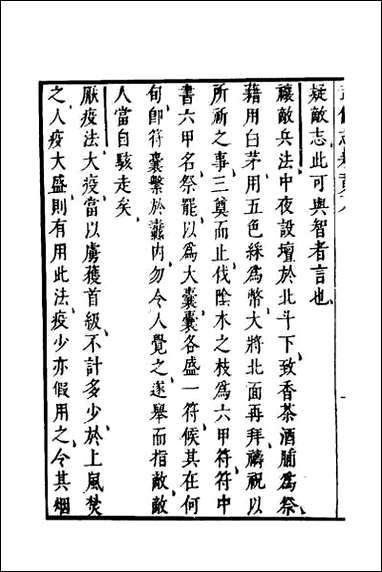 疑敵志此可與智者言也
禳敵兵法中夜設壇於北斗下致香茶酒脯爲祭
藉用白茅用五色綵爲幣大將北面再拜禱祝以
所祈之事三奠而止伐陰木之枝爲六甲符符中
書六甲名祭罷以爲大囊囊各盛一符候其在何
旬卽符囊繫於纛内勿令人覺之遂舉而指敵敵
人當自駭走矣
厭疫法大疫當以虜獲首級不計多少於上風焚
之人疫大盛則有用此法疫少亦假用之令其烟